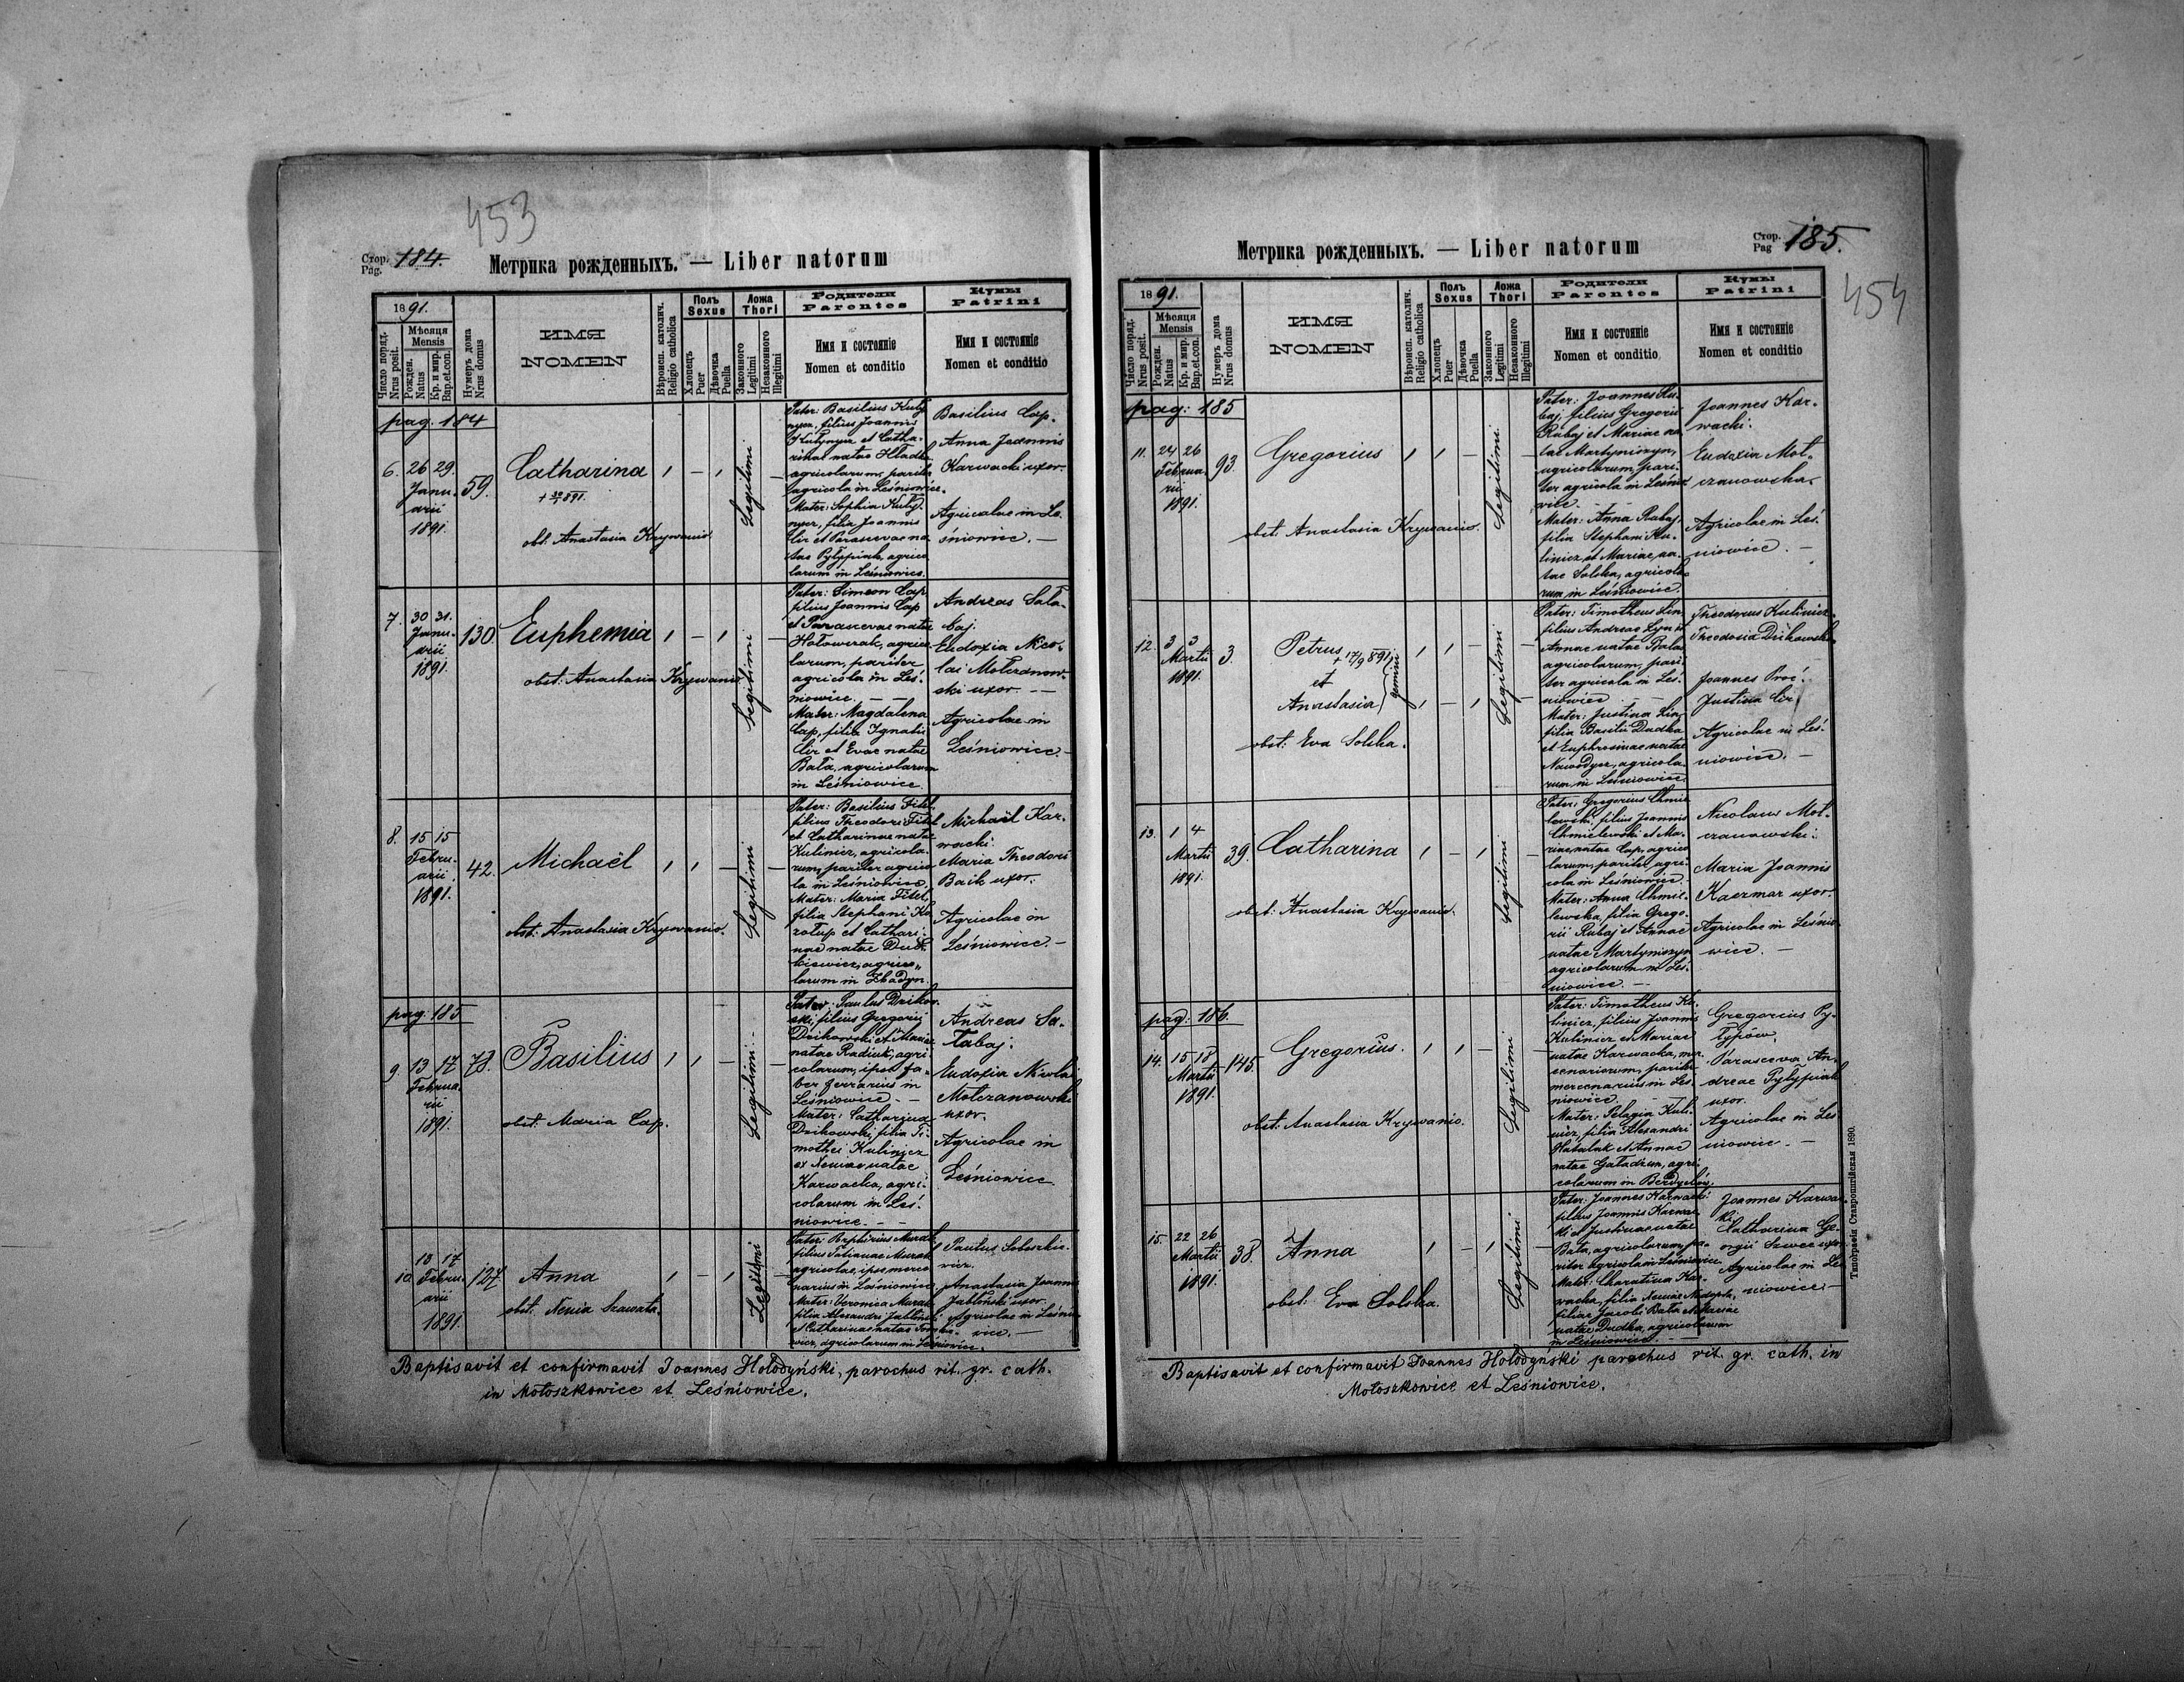 453
Стор. Pag. 184.
Метрика рожденныхъ. — Liber natorum
1891.
Число поряд. Nrus posit.
Мѣсяця Mensis
Рожден. Natus
Кр. и мир. Bap. et con.
Нумеръ дома Nrus domus
ИМЯ
NOMEN
Вѣроисп. католич. Religio catholica
Полъ Sexus
Хлопецъ Puer
Дѣвочка Puella
Ложа Thori
Законного Legitimi
Незаконного Illegitimi
Родители Parentes
Имя и состояніе
Nomen et conditio
Кумы Patrini
Имя и состояніе
Nomen et conditio
pag. 184
6. 26 29. Januarii 1891. 59.
Catharina
obst. Anastasia Krywanio
Legitimi
Pater: Basilius
filius Joannis
et Catha-
rinae natae
agricolarum, pariter
agricola in Leśniowice.
Mater: Sophia
filia Joannis
Cir et Parascevae na-
tae Pyłypiak, agrico
larum in Leśniowice.
Basilius Cap.
Anna Joannis
Karwacki uxor.
Agricolae in Le-
śniowice. —
7. 30 31. Januarii 1891. 130.
Euphemia
obst. Anastasia Krywanio
Legitimi
Pater: Simeon Cap
filius Joannis Cap
et Parascevae natae
Hołowczak, agrico
larum, pariter
agricola in Leś-
niowice. — —
Mater: Magdalena
Cap, filia Ignatii
Cir et Evae natae
Bata, agricolarum
in Leśniowice.
Andreas Sała-
baj.
Eudoxia Nico-
lai Mołczanow-
ski uxor. — —
Agricolae in
Leśniowice. —
8. 15 15 Februarii 1891. 42.
Michaël
obst. Anastasia Krywanio.
Legitimi
Pater: Basilius Fitel,
filius Theodori Fitel
et Catharinae natae
Kulinicz, agricola-
rum, pariter agrico
la in Leśniowice,
Mater: Maria Fitel,
filia Stephani Ko
rołup et Cathari-
nae natae
agrico-
larum in
Michaël Kar-
wacki.
Maria Theodori
Baik uxor.
Agricolae in
Leśniowice. —
pag. 185
9. 13 17 Februarii 1891. 73.
Basilius
obst. Maria Cap.
Legitimi
Pater: Paulus Dzikow
ski, filius Gregorii
Dzikowski et Mariae
natae Radiuk, agri
colarum, ipse fa-
ber ferrarius in
Leśniowice. —
Mater: Catharina
Dzikowski, filia Ti-
mothei Kulinicz
et Xeniae natae
Karwacka, agri-
colarum in Leś-
niowice. — —
Andreas Sa-
łabaj.
Eudoxia Nicolai
Mołczanowski
uxor.
Agricolae in
Leśniowice
10. 13 17 Februarii 1891. 127.
Anna
obst. Xenia Szawała.
Legitimi
filius Tatianae
agricolae, ipse merce
narius in Leśniowice
Mater: Veronica
filia Alexandri Jabłoński
et Catharinae natae
agricolarum in Leśniowice.
Paulus
Anastasia Joannis
Jabłoński uxor.
Agricolae in Leśnio
wice. —
Baptisavit et confirmavit Joannes Hołodyński, parochus rit. gr. cath.
in Mołoszkowice et Leśniowice.
454
Стор. Pag 185.
Метрика рожденныхъ. — Liber natorum
1891.
Число поряд. Nrus posit.
Мѣсяця Mensis
Рожден. Natus
Кр. и мир. Bap. et con.
Нумеръ дома Nrus domus
ИМЯ
NOMEN
Вѣроисп. католич. Religio catholica
Полъ Sexus
Хлопецъ Puer
Дѣвочка Puella
Ложа Thori
Законного Legitimi
Незаконного Illegitimi
Родители Parentes
Имя и состояніе
Nomen et conditio
Кумы Patrini
Имя и состояніе
Nomen et conditio
pag: 185
11. 24 26 Februarii 1891. 93.
Gregorius
obst. Anastasia Krywanio.
Legitimi
Pater: Joannes Ru-
baj, filius Gregorii
Rubaj et Mariae na
tae Martyniszyn,
agricolarum, pari-
ter agricola in Leśnio
wice. — —
Mater: Anna Rubaj,
filia Stephani Ku-
linicz et Mariae na-
tae Solska, agricola
rum in Leśniowice.
Joannes Kar-
wacki.
Eudoxia Moł-
czanowska.
Agricolae in Leś-
niowice. —
12. 3 3 Martii 1891. 3.
Petrus
+ 17/9 891.
et
Anastasia
gemini
obst: Eva Solska.
Legitimi
Pater: Timotheus Lin,
filius Andreae Lyn et
Annae natae
agricolarum, pari
ter agricola in Leś-
niowice
Mater: Justina Lin,
filia Basilii Dudka
et Euphrosinae natae
agricola-
rum in Leśniowice.
Theodorus Kulinicz.
Theodosia Dzikowska
Joannes Proć.
Justina Cir
Agricolae in Leś-
niowice. —
13. 1 4 Martii 1891. 39.
Catharina
obst: Anastasia Krywanio.
Legitimi
Pater: Gregorius Chmie
lewski, filius Joannis
Chmielewski et Ma-
riae natae Cap, agrico
larum, pariter agri-
cola in Leśniowice.
Mater: Anna Chmie-
lewska, filia Grego-
rii Rubaj et Annae
natae Martyniszyn
agricolarum in Leś-
niowice. —
Nicolaus Moł-
czanowski.
Maria Joannis
Kaczmar uxor.
Agricolae in Leśnio
wice. —
pag: 186.
14. 15 18 Martii 1891. 145.
Gregorius.
obst: Anastasia Krywanio.
Legitimi
Pater: Timotheus Ku-
linicz, filius Joannis
Kulinicz et Mariae
natae Karwacka, mer
cenariorum, pariter
mercenarius in Leś
niowice. —
Mater: Pelagia Kuli-
nicz, filia Alexandri
et Annae
natae Gaładzun, agri
colarum in
Gregorius Py-
łypów.
Parasceva An-
dreae Pyłypiak
uxor.
Agricolae in Leś
niowice. —
15. 22 26 Martii 1891. 38.
Anna
obst: Eva Solska.
Legitimi
Pater: Joannes Karwacki
filius Joannis Karwac
ki et Justinae natae
Bata, agricolarum, pa-
riter agricola in Leśniowice
Mater: Charitina Kar-
wacka, filia Xeniae
filiae Jacobi Bata et Mariae
natae Dudka, agricolarum
in Leśniowice. —
Joannes Karwac
ki
Catharina Ge-
orgii Szwec uxor.
Agricolae in Leś
niowice. —
Типографія Ставропигійская 1890.
Baptisavit et confirmavit Joannes Hołodyński parochus rit. gr. cath. in
Mołoszkowice et Leśniowice.